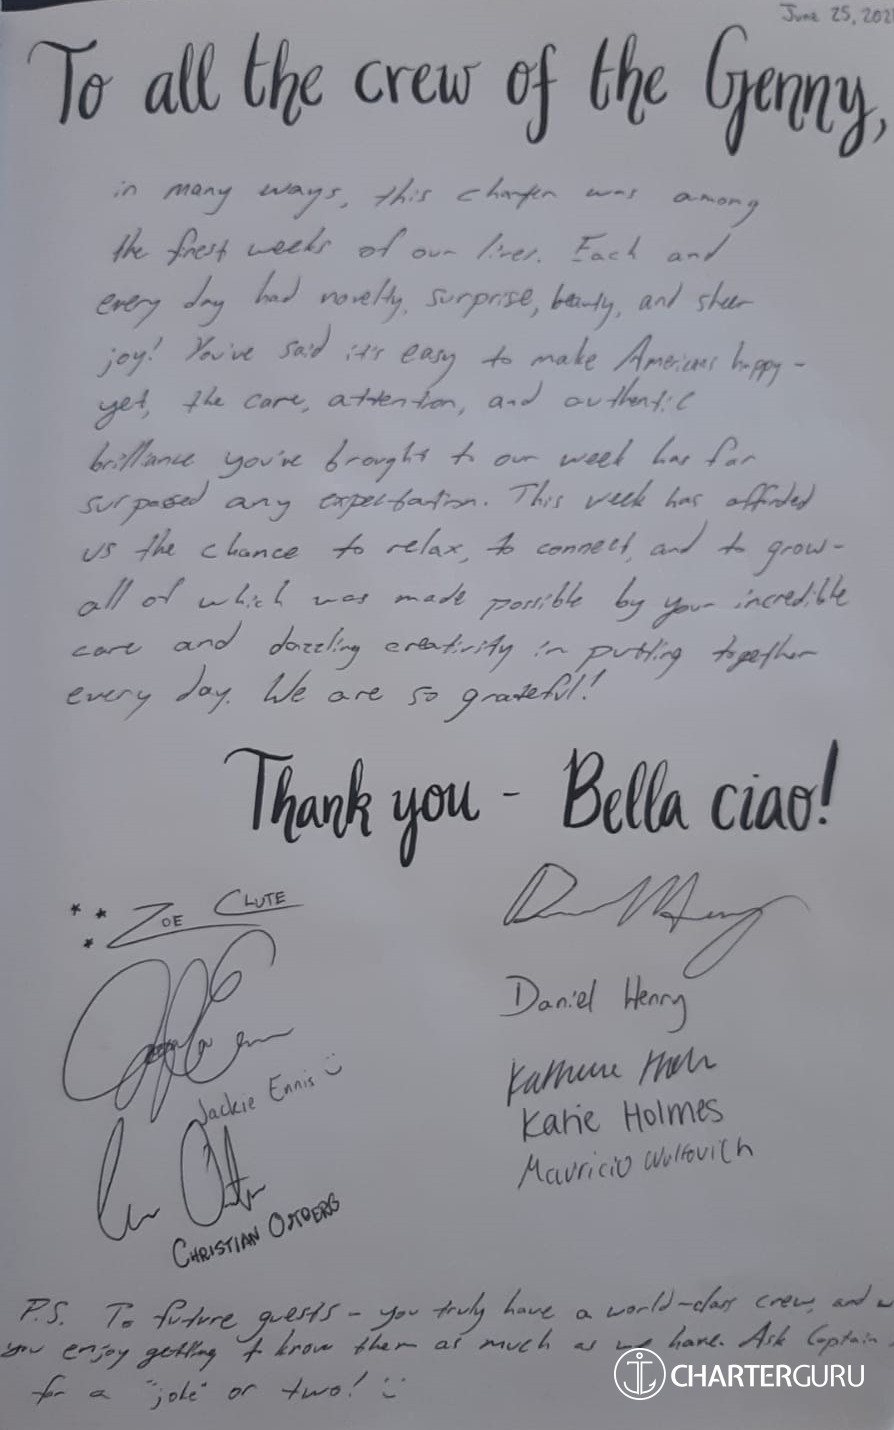 June 25, 202
To all the crew of the Genny,
in many ways, this charter was among
the finest weeks of our lives. Each and
every day had novelty, surprise, beauty, and sheer
joy! You've said it's easy to make Americans happy -
yet, the care, attention, and authentic
brilliance you've brought to our week has far
surpassed any expectation. This week has afforded
us the chance to relax, to connect, and to grow-
all of which was made possible by your incredible
care and dazzling creativity in putting together
every day. We are so grateful!
Thank you - Bella ciao!
ZOE CLUTE
Daniel Henry
Jackie Ennis
Katie Holmes
Mauricio Wulfovich
CHRISTIAN OSTBERG
P.S. To future guests - you truly have a world-class crew, and
you enjoy getting to know them as much as we have. Ask Captain
for a "joke" or two!
CHARTERGURU